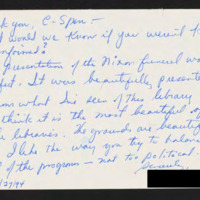 k you, C-Span —
would we know if you weren't
informed?
presentation of the Nixon funeral wa
It was beautifully presente
om what I've seen of this library
think it is the most beautiful of
libraries. The grounds are beautifu
I like the way you try to balan
of the program — not too political
/27/94